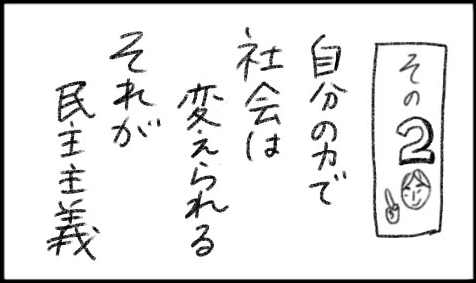 その2
自分の力で
社会は
変えられる
それが
民主主義